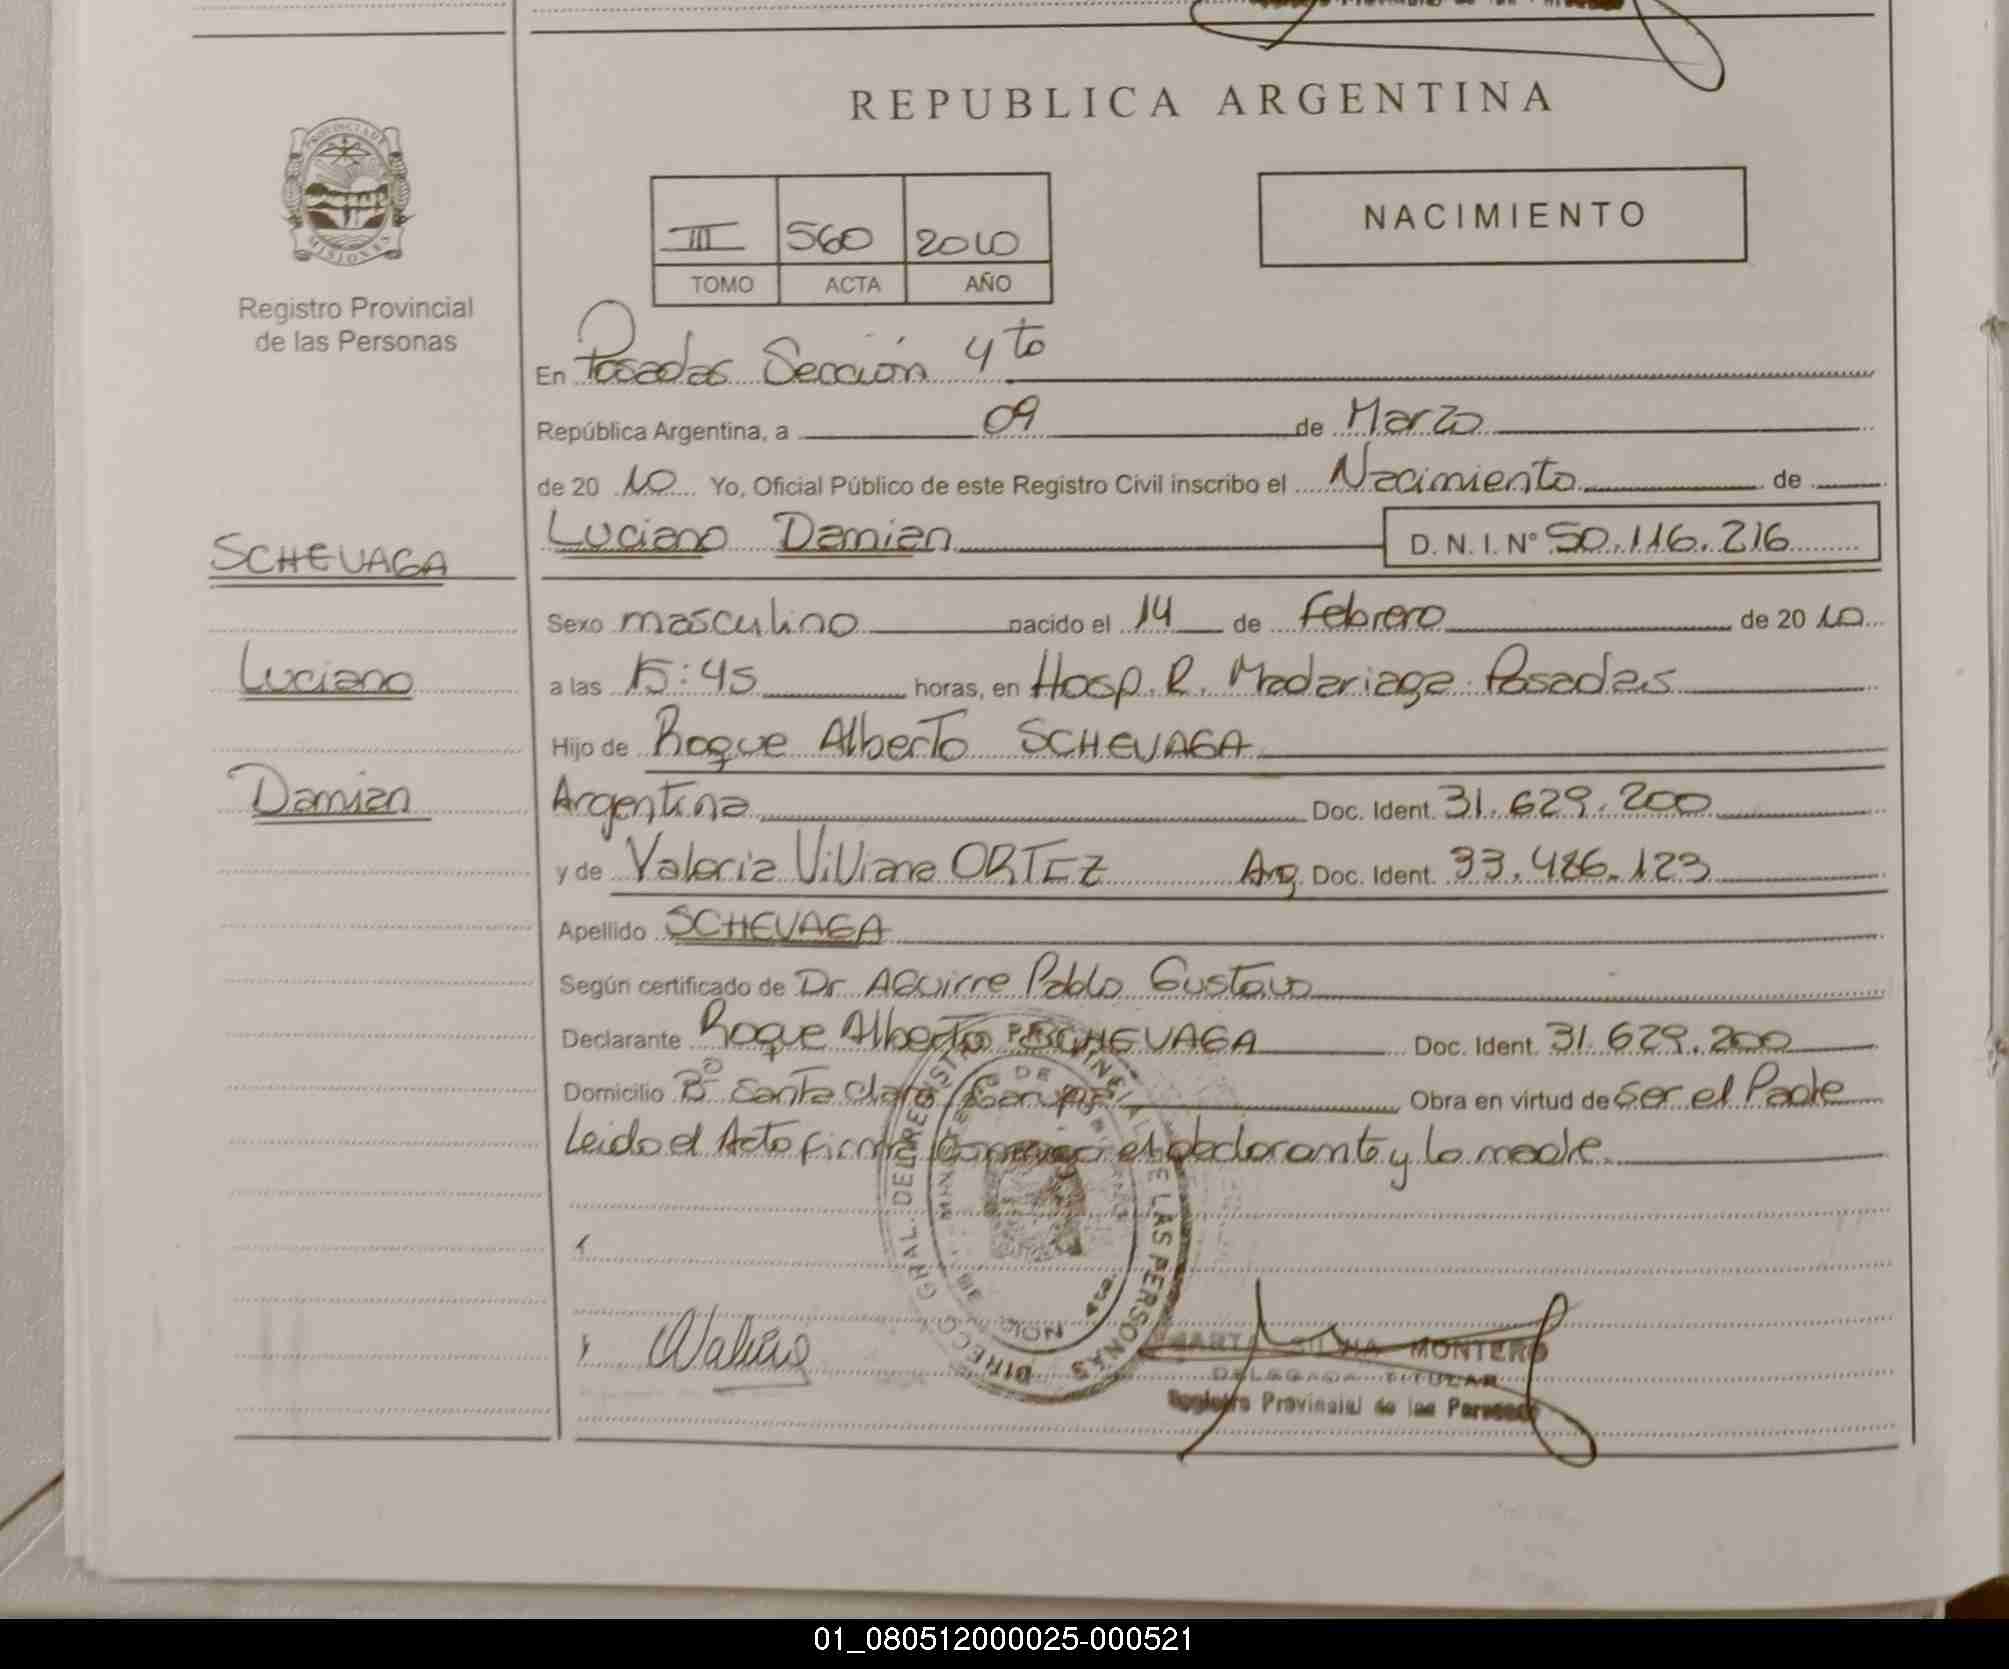 REPUBLICA ARGENTINA
PROVINCIA DE
MISIONES
Registro Provincial
de las Personas
NACIMIENTO
III 560 2010
TOMO ACTA AÑO
En Posadas Sección 4to
República Argentina, a 09 de Marzo
de 20 10 Yo, Oficial Público de este Registro Civil inscribo el Nacimiento de
SCHEVAGA
Luciano Damian D. N. I. N° 50.116.216
Sexo masculino nacido el 14 de Febrero de 20 10
Luciano
a las 15:45 horas, en Hosp. R. Madariaga Posadas
Hijo de Roque Alberto SCHEVAGA
Damian
Argentina Doc. Ident. 31.629.200
y de Valeria Viviana ORTIZ Arg. Doc. Ident. 33.486.123
Apellido SCHEVAGA
Según certificado de Dr Aguirre Pablo Gustavo
Declarante Roque Alberto SCHEVAGA Doc. Ident. 31.629.200
Domicilio Bº Santa Clara Garupá Obra en virtud de ser el Padre
Leido el Acto firma conmigo el declarante y la madre.
DIRECC. GRAL. DEL REGISTRO DE LAS PERSONAS
MONTERO
DELEGADA TITULAR
Registro Provincial de las Personas
01_080512000025-000521